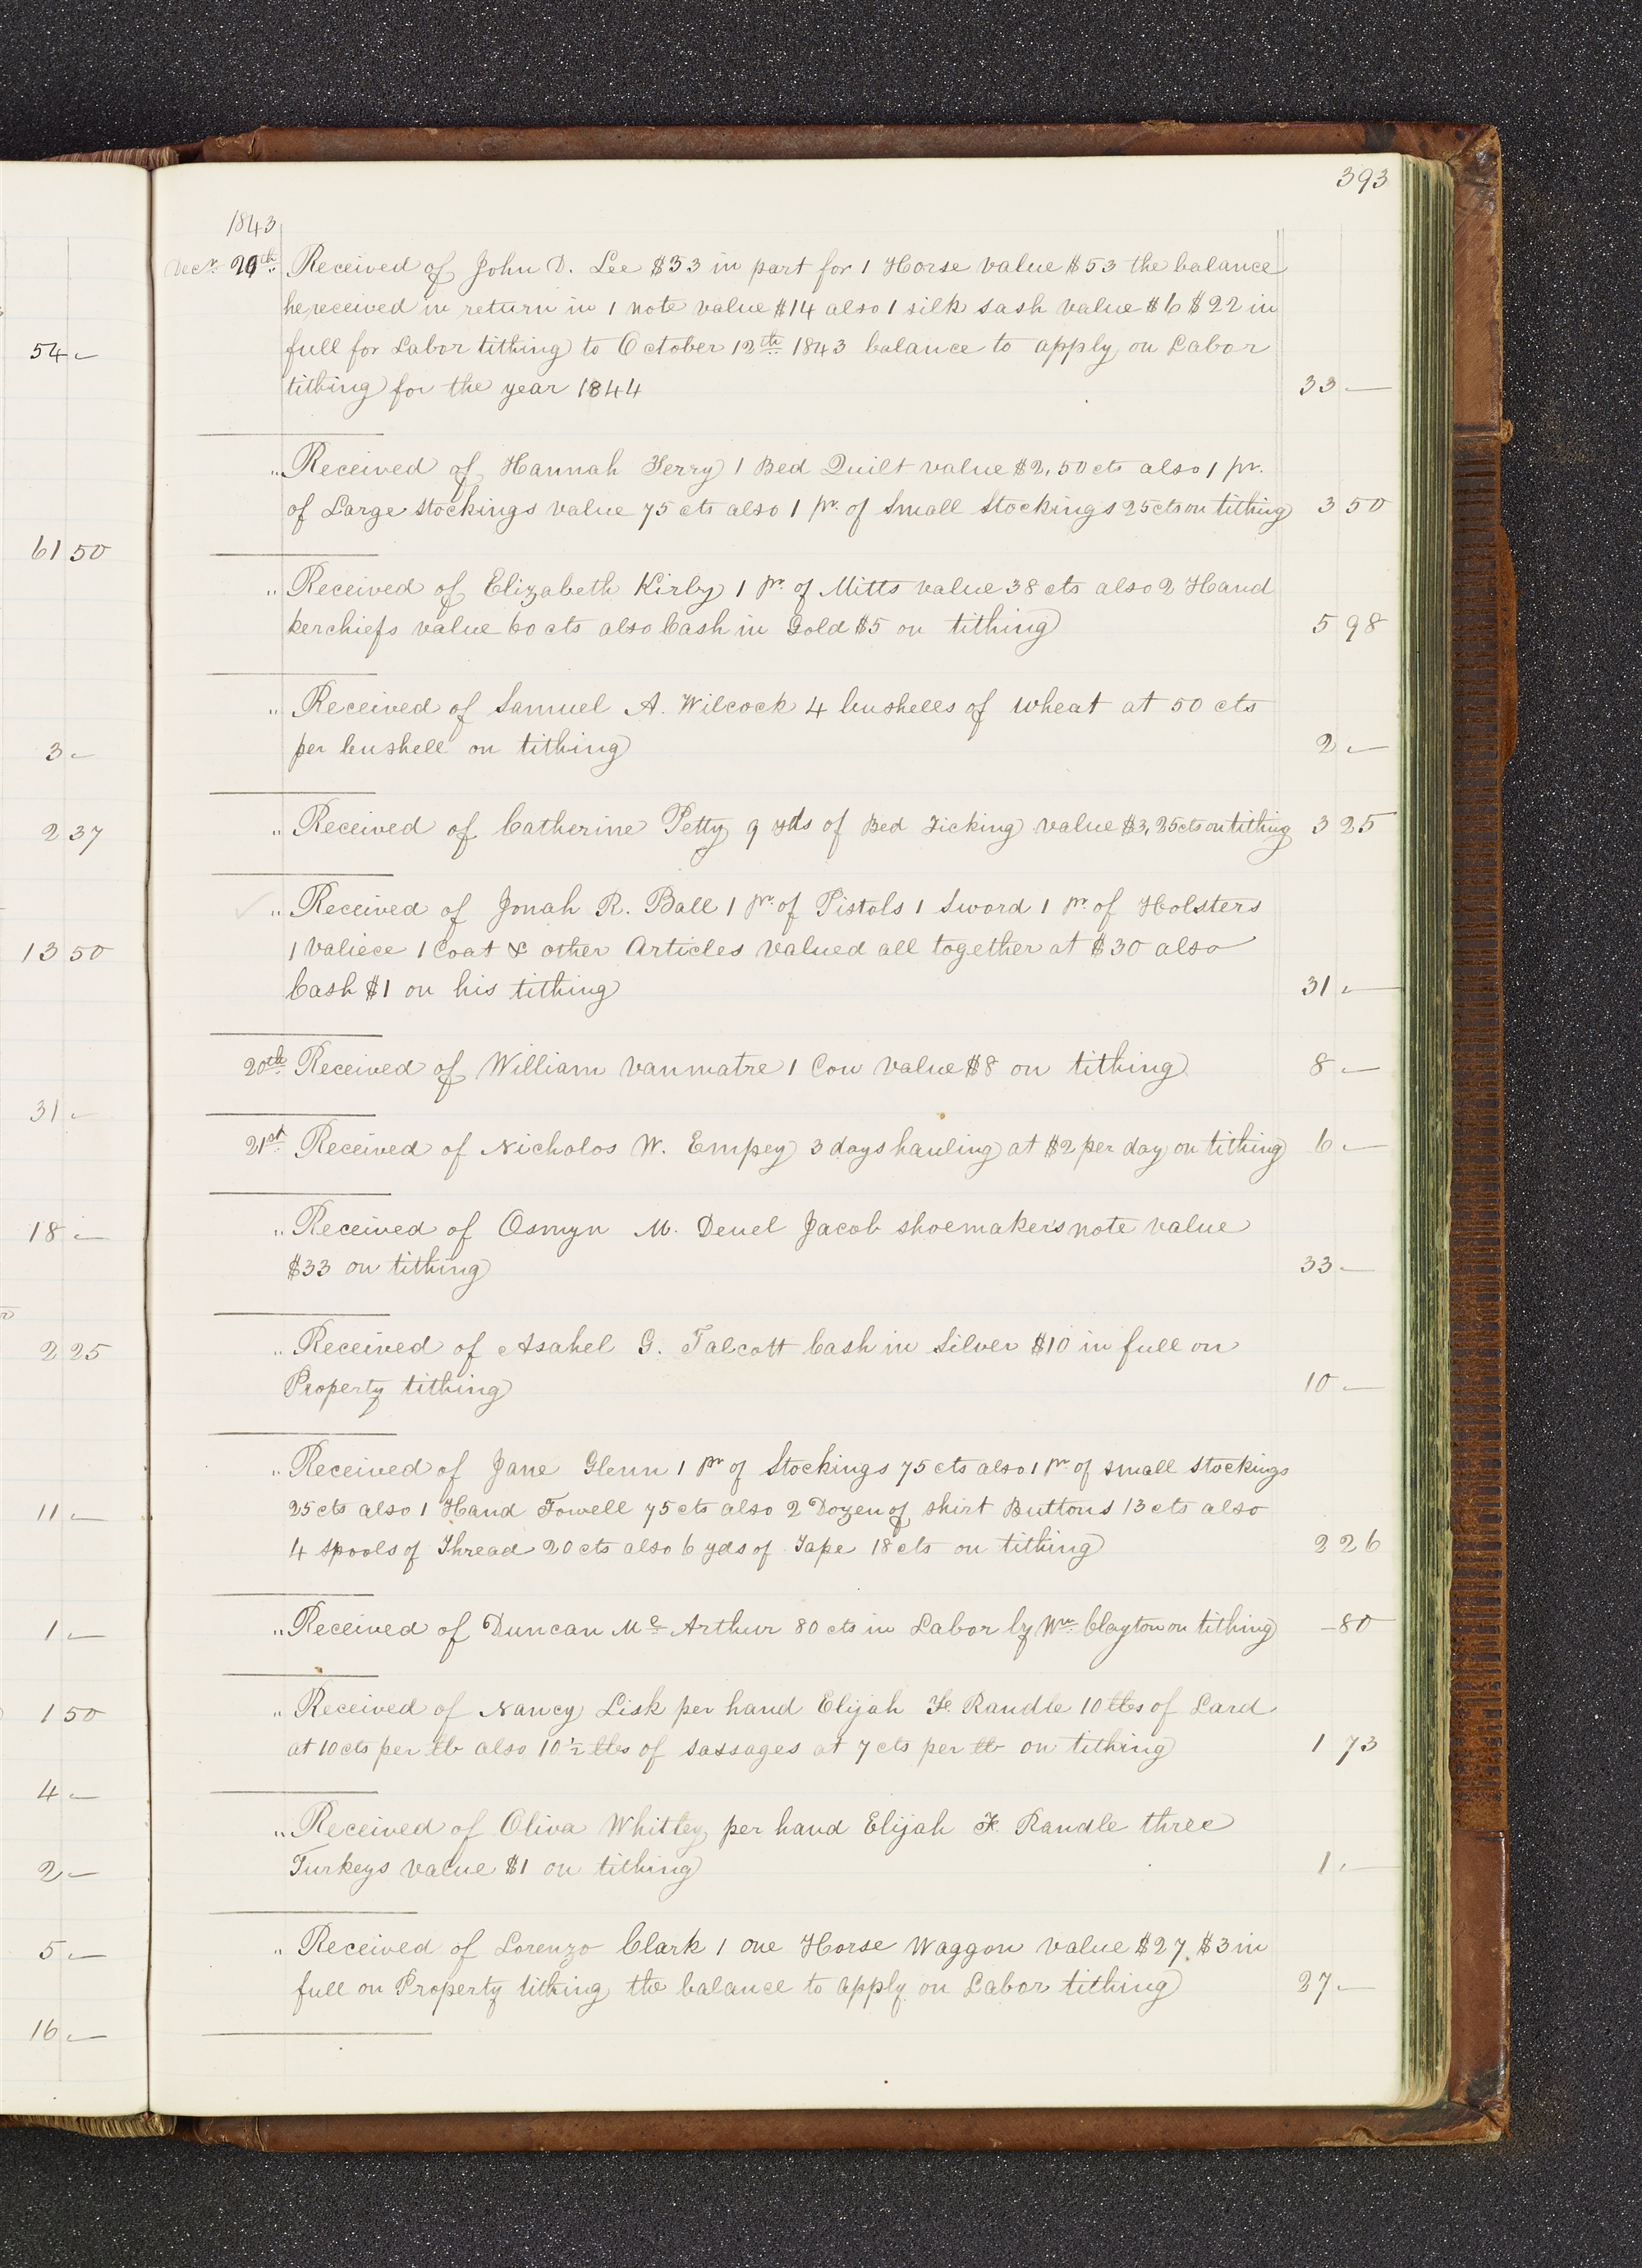 393
1843
Decr. 20th. Received of John D. Lee $33 in part for 1 Horse value $53 the balance
he received in return in 1 note value $14 also 1 silk sash value $6 $22 in
full for Labor tithing to October 12th. 1843 balance to apply on Labor
54 -
tithing for the year 1844 33 -
" Received of Hannah Terry 1 Bed Quilt value $2,50 cts also 1 pr.
of Large stockings value 75 cts also 1 pr. of Small Stockings 25 cts on tithing 3 50
61 50
" Received of Elizabeth Kirby 1 pr. of Mitts value 38 cts also 2 Hand
kerchiefs value 60 cts also Cash in Gold $5 on tithing 5 98
" Received of Samuel A. Wilcock 4 bushells of wheat at 50 cts
per bushell on tithing 2 -
3 -
" Received of Catherine Petty 9 yds of Bed Ticking value $3,25 cts on tithing 3 25
2 37
" Received of Jonah R. Ball 1 pr. of Pistols 1 Sword 1 pr. of Holsters
1 valiece 1 Coat & other Articles valued all together at $30 also
13 50
Cash $1 on his tithing 31 -
20th. Received of William Vanmatre 1 Cow value $8 on tithing 8 -
31 -
21st. Received of Nicholos W. Empey 3 days hauling at $2 per day on tithing 6 -
" Received of Osmyn M. Deuel Jacob shoemakers note value
18 -
$33 on tithing 33 -
" Received of Asahel G. Talcott Cash in Silver $10 in full on
2 25
Property tithing 10 -
" Received of Jane Glenn 1 pr of Stockings 75 cts also 1 pr. of small stockings
25 cts also 1 Hand Towell 75 cts also 2 Dozen of shirt Buttons 13 cts also
11 -
4 spools of Thread 20 cts also 6 yds of Tape 18 cts on tithing 2 26
" Received of Duncan Mc Arthur 80 cts in Labor by Wm. Clayton on tithing - 80
1 -
" Received of Nancy Lisk per hand Elijah F. Randle 10 lbs of Lard
1 50
at 10 cts per lb also 10 ½ lbs of sassages at 7 cts per lb on tithing 1 73
4 -
" Received of Oliva Whitley per hand Elijah F. Randle three
Turkeys value $1 on tithing 1 -
2 -
" Received of Lorenzo Clark 1 one Horse Waggon value $27, $3 in
5 -
full on Property tithing the balance to apply on Labor tithing 27 -
16 -